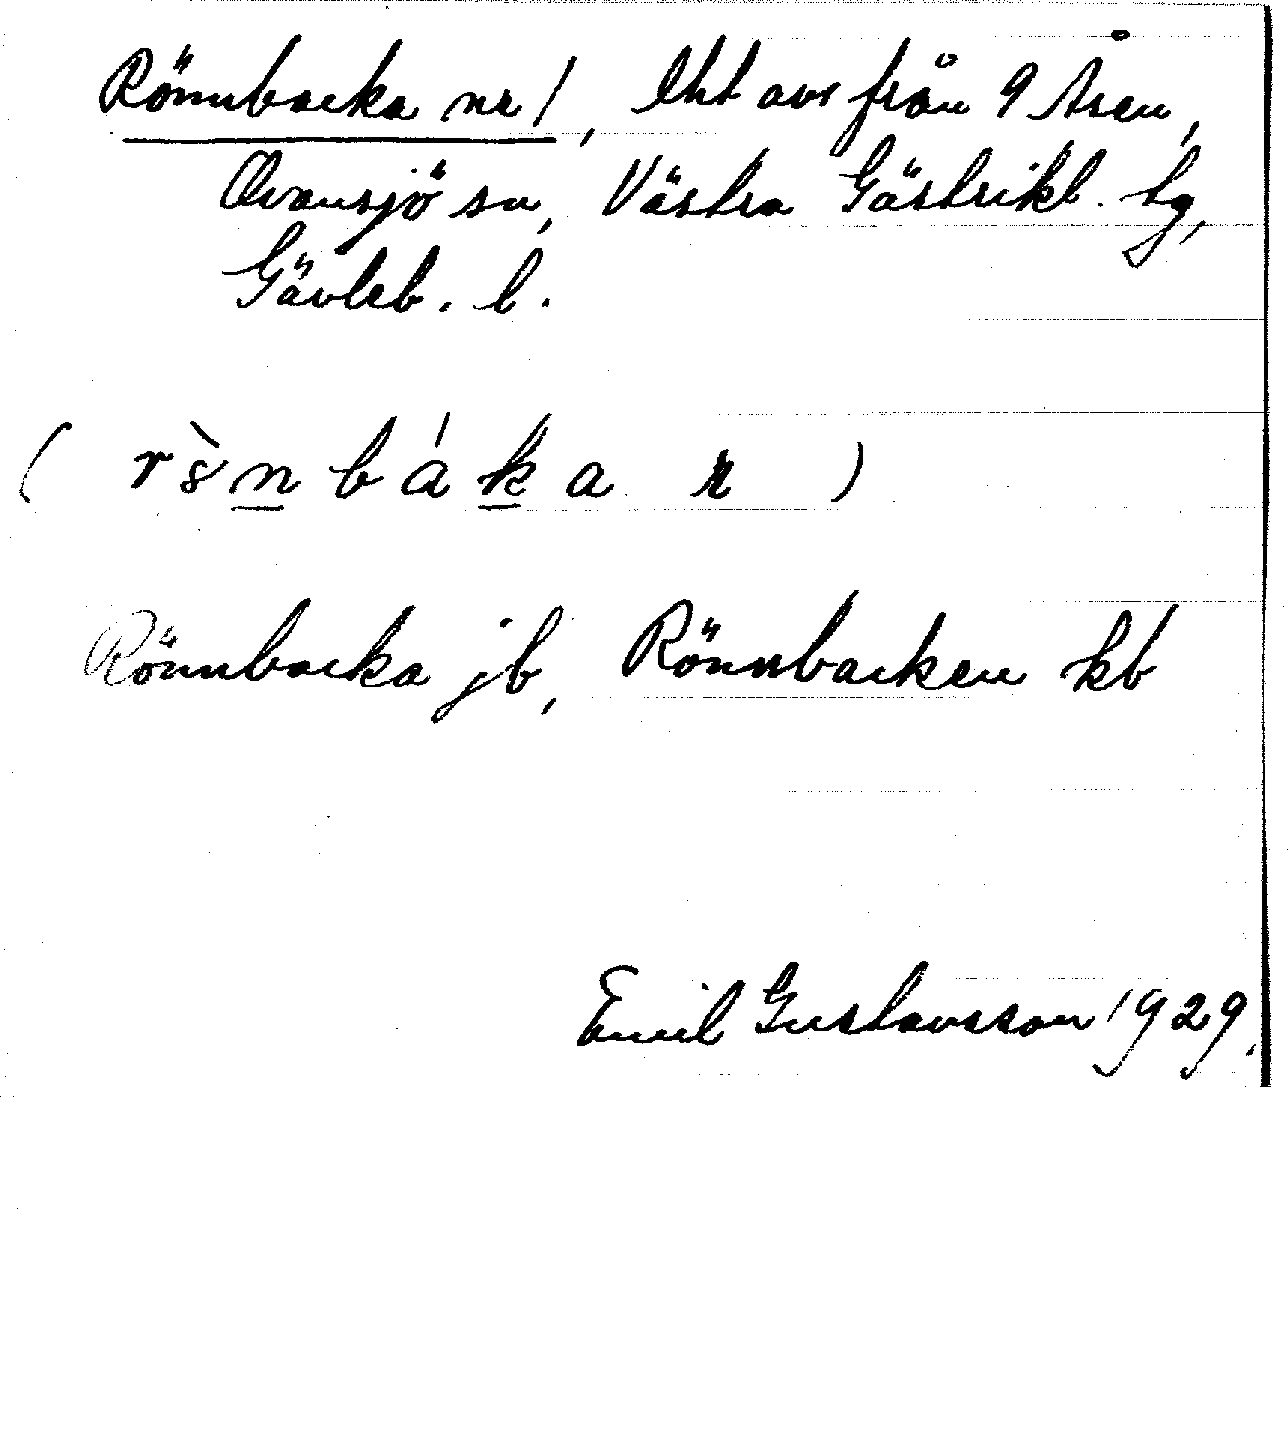 Rönnbacka nr 1, lht avs från 9 Åsen,
Ovansjö sn, Västra Gästrikl. tg,
Gävleb. l.
( rènbákar )
Rönnbacka jb, Rönnbacken kb
Emil Gustavsson 1929.